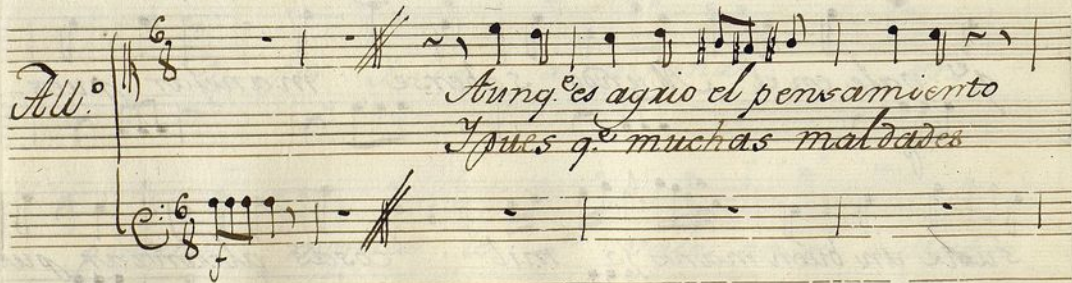 6
8
All.º
Aunq.e es agrio el pensamiento
Y pues q.e muchas maldades
6
8
f